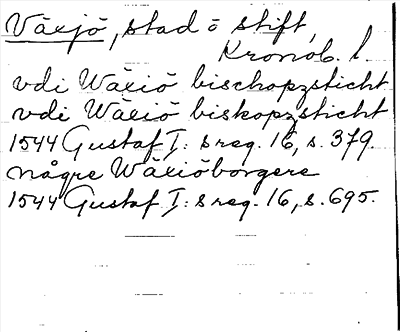 Växjö, stad o stift,
Kronob. l.
vdi Wäxiö bischopzsticht
vdi Wäxiö biskopzsticht
1544 Gustaf I: s reg. 16, s. 379.
någre Wäxiöborgere
1544 Gustaf I: s reg. 16, s. 695.